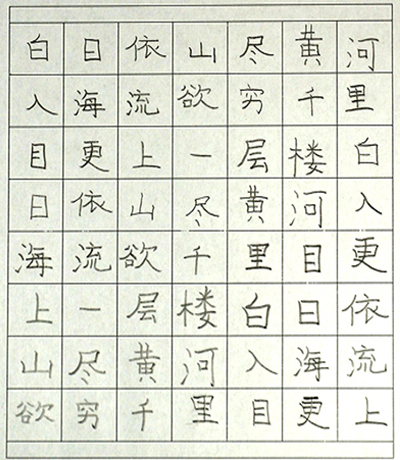 白日依山尽黄河
入海流欲穷千里
目更上一层楼白
日依山尽黄河入
海流欲千里目更
上一层楼白日依
山尽黄河入海流
欲穷千里目更上